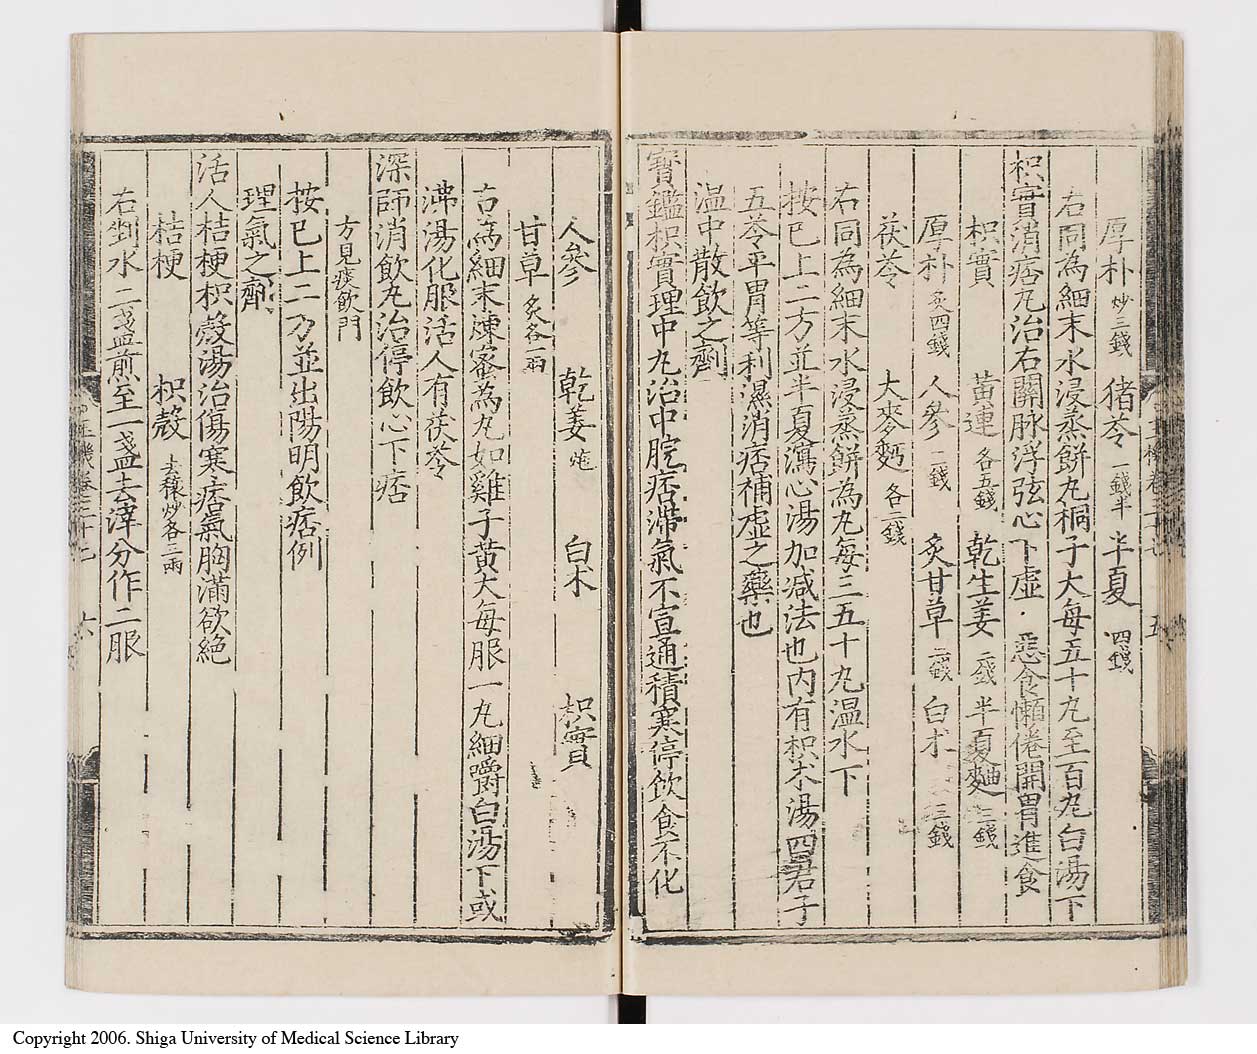 厚朴炒三錢 猪苓一錢半 半夏四錢
右同為細末水浸蒸餅丸桐子大每五十丸至百丸白湯下
枳實消痞丸治右關脉浮弦心下虛 惡食懶倦開胃進食
枳實 黃連各五錢 乾生姜二錢 半夏麯三錢
厚朴炙四錢 人參二錢 炙甘草二錢 白朮三錢
茯苓 大麥麪各二錢
右同為細末水浸蒸餅為丸每三五十丸温水下
按已上二方並半夏瀉心湯加减法也内有枳朮湯四君子
五苓平胃等利濕消痞補虛之藥也
温中散飲之劑
寳鑑枳實理中丸治中脘痞滯氣不宣通積寒停飲食不化
人參 乾姜炮 白朮 枳實
甘草炙各一兩
右為細末煉蜜為丸如雞子黃大每服一丸細嚼白湯下或
沸湯化服活人有茯苓
深師消飲丸治停飲心下痞
方見痰飲門
按已上二方並出陽明飲痞例
理氣之劑
活人桔梗枳殼湯治傷寒痞氣胸滿欲絶
桔梗 枳殼去穰炒各三兩
右剉水二盞煎至一盞去滓分作二服
六
Copyright 2006. Shiga University of Medical Science Library